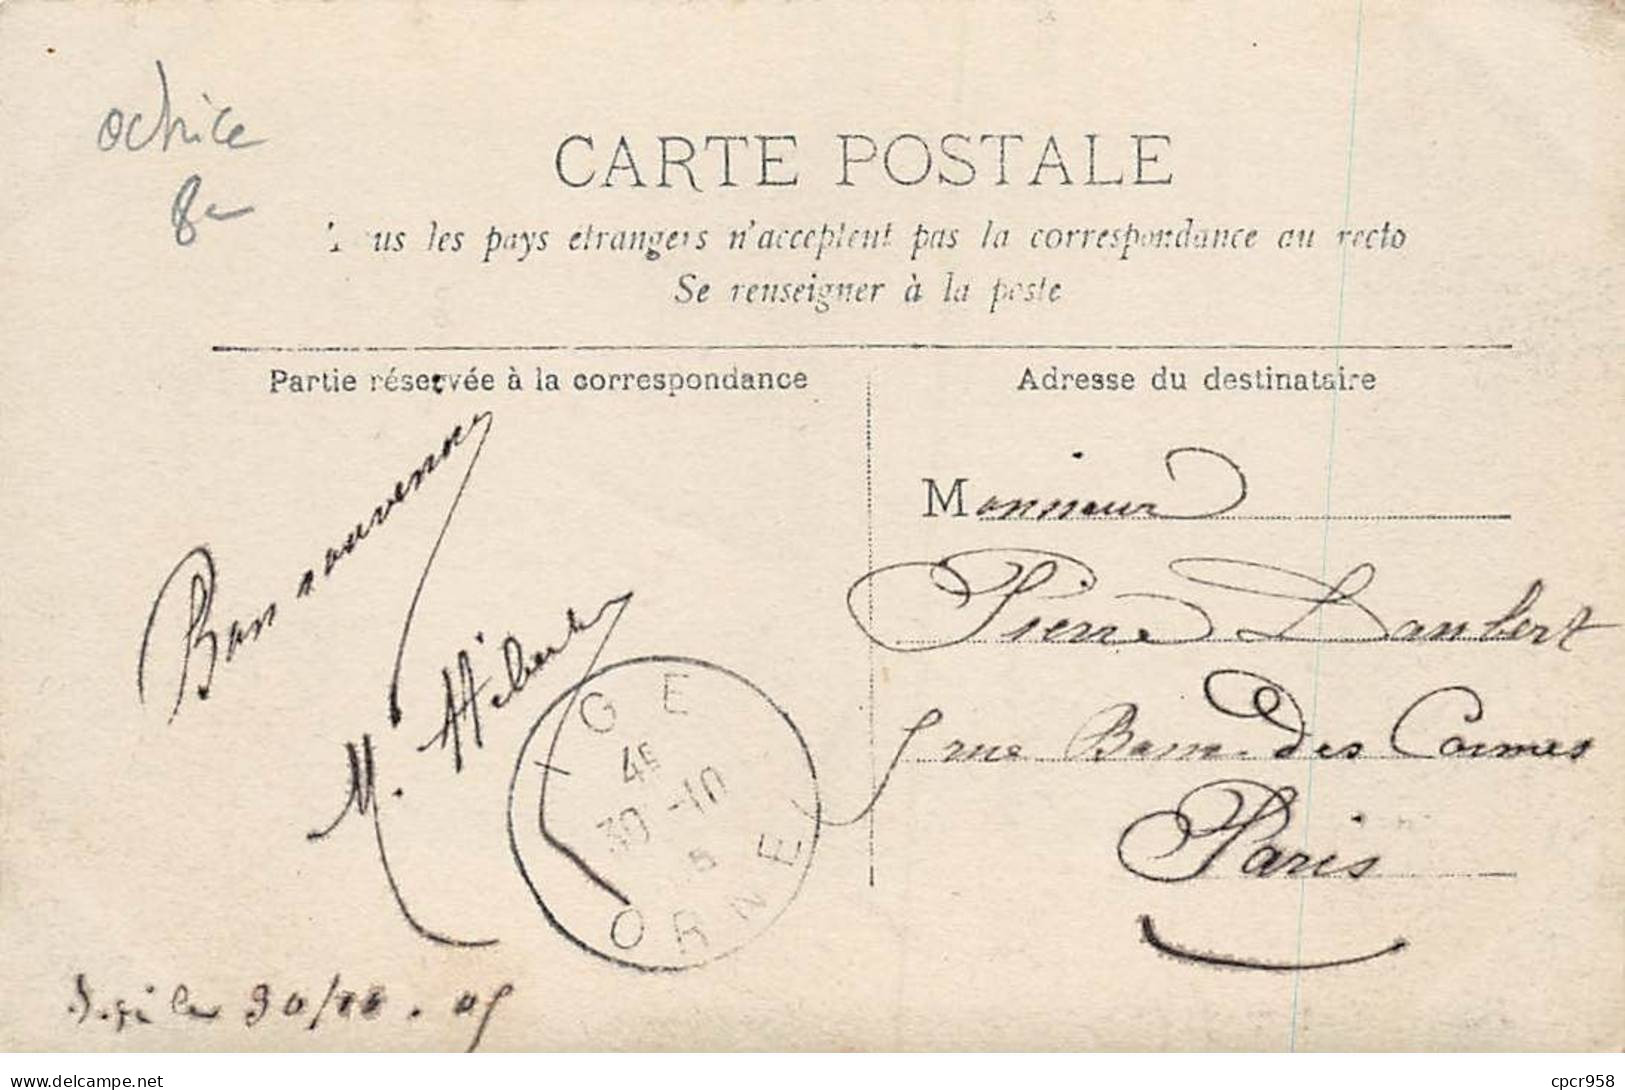 actrice
8-
CARTE POSTALE
Tous les pays etrangers n'acceptent pas la correspondance au recto
Se renseigner à la poste
Partie réservée à la correspondance
Adresse du destinataire
Bon souvenir
M. Hébert
Monsieur
Pierre Lambert
5 rue Basse des Carmes
Paris
IGE
4E
30 -10
5
ORNE
30/10.05
delcampe.net
cpcr958